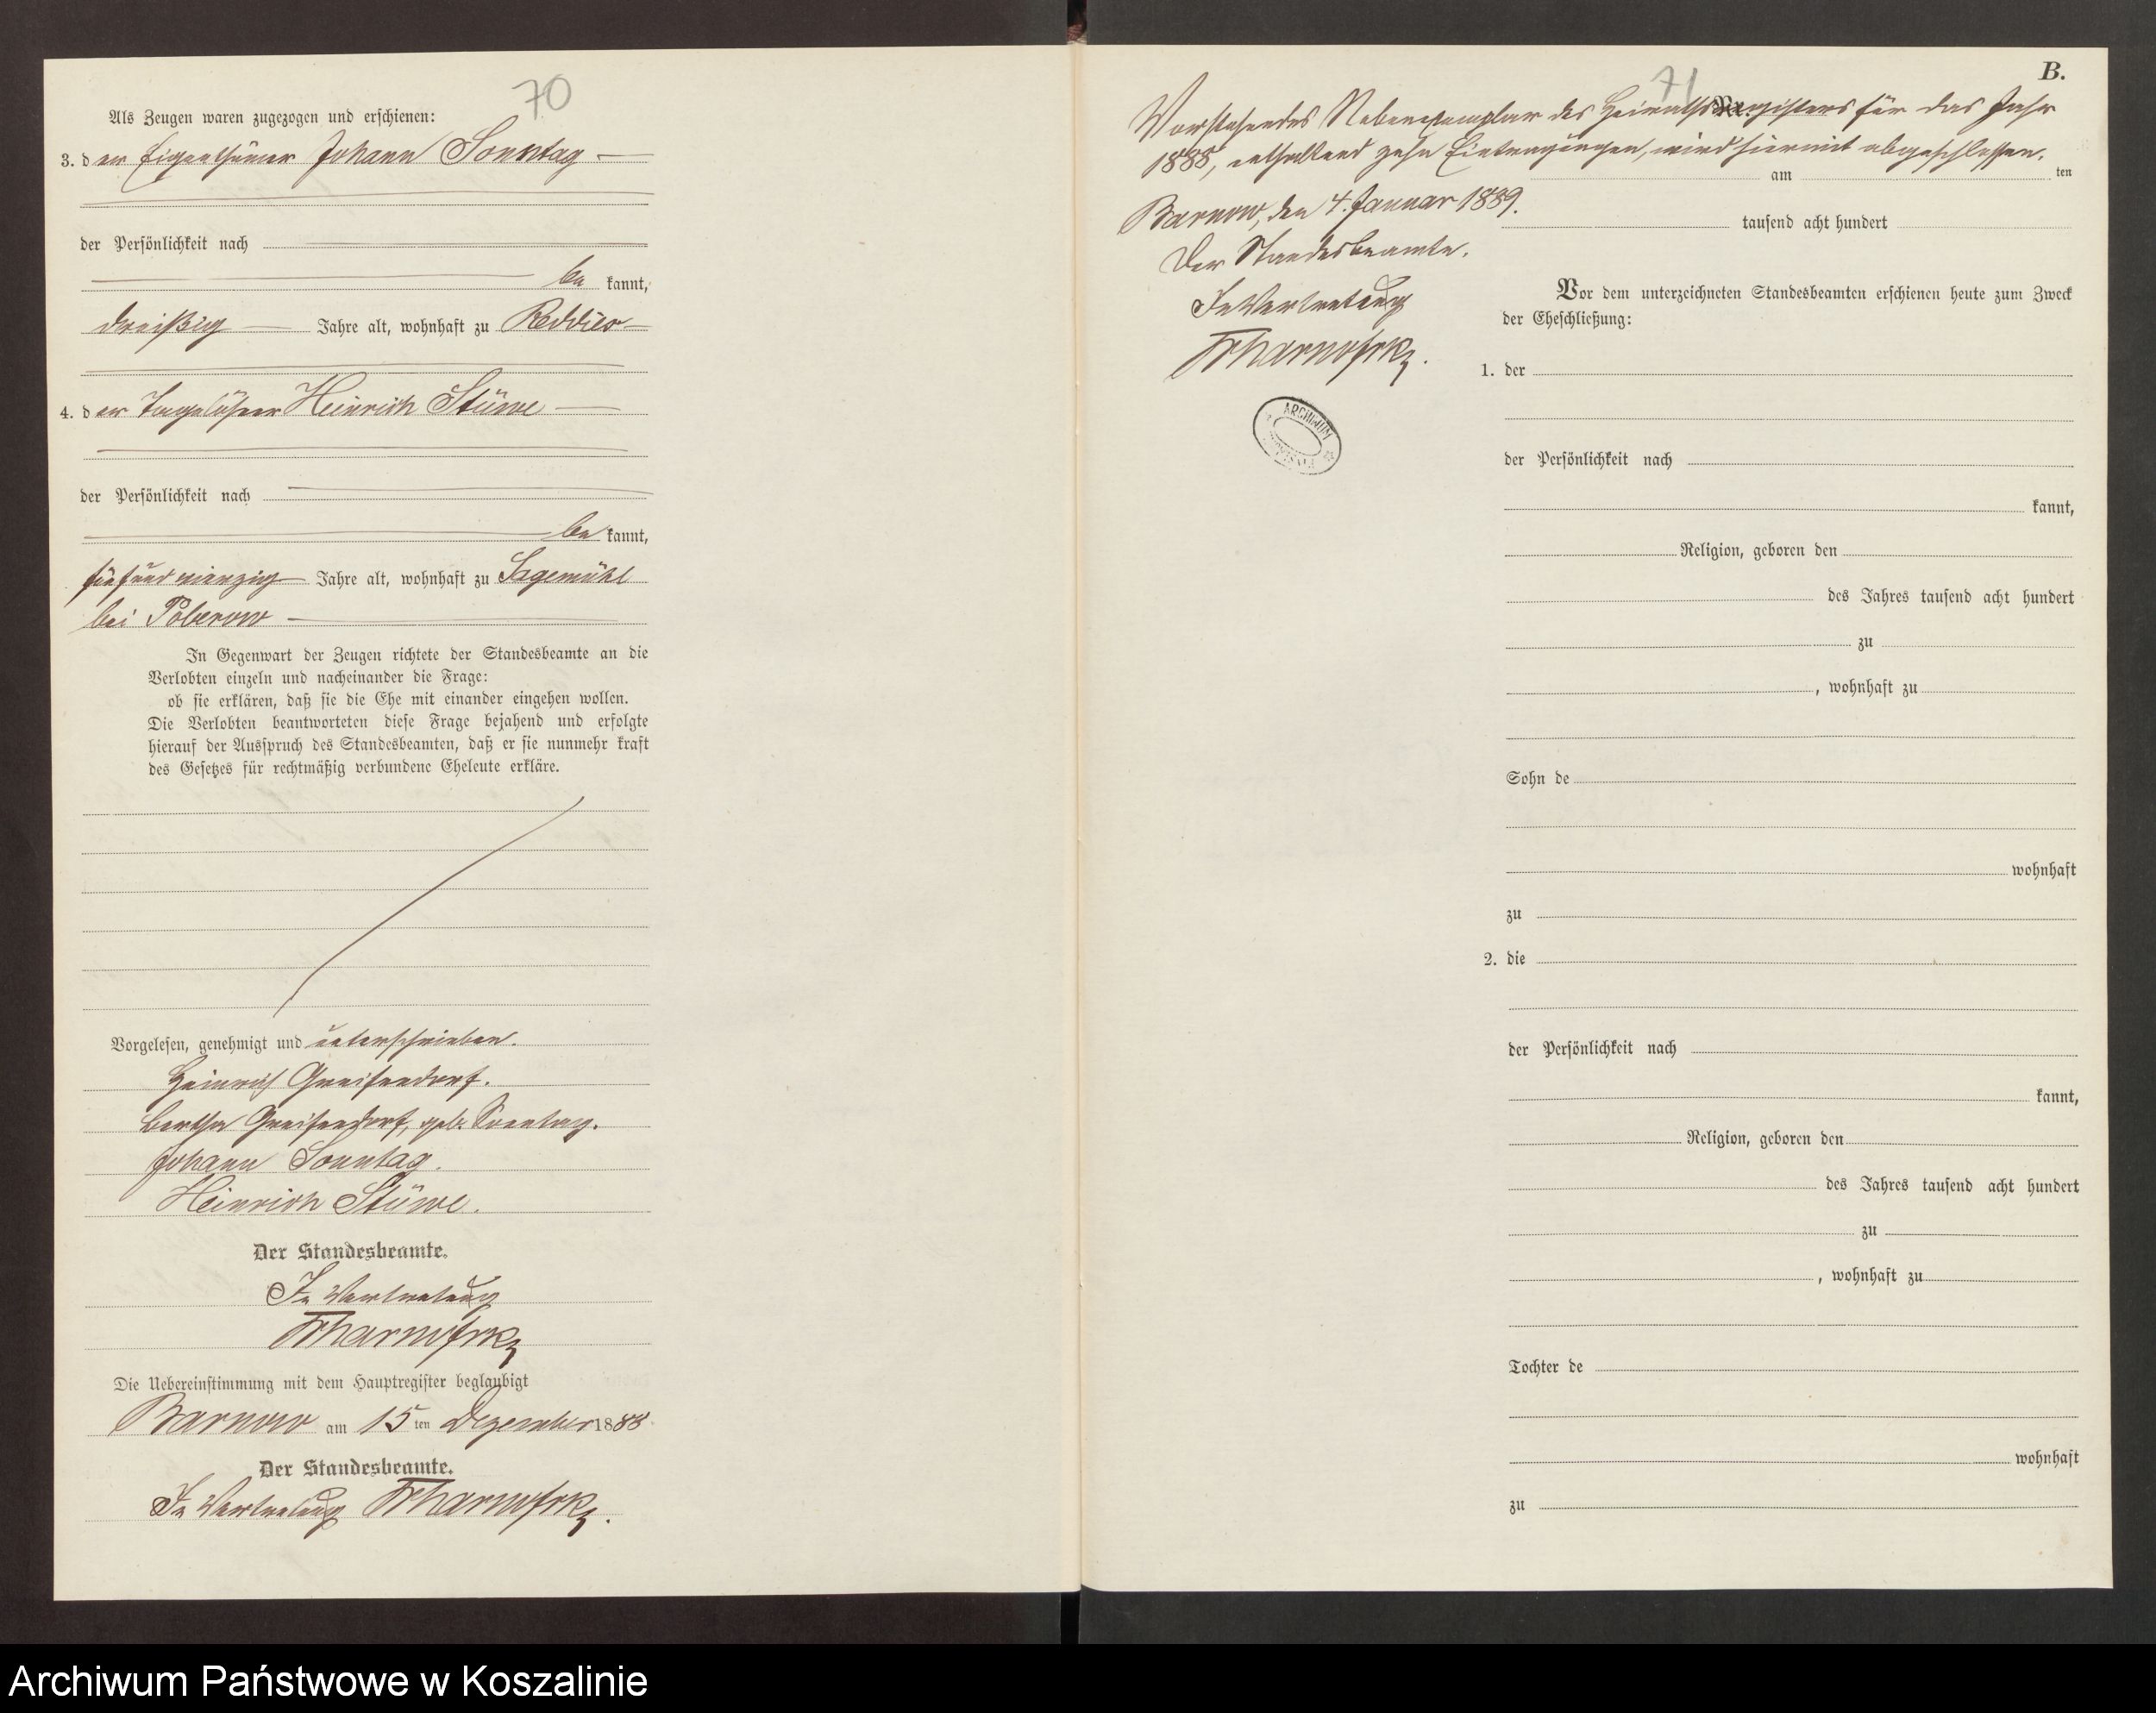 70
Als Zeugen waren zugezogen und erschienen:
3. der Eigenthümer Johann Sonntag
der Persönlichkeit nach
be kannt,
dreißig Jahre alt, wohnhaft zu Reddies
4. der Tagelöhner Heinrich Stüwe
der Persönlichkeit nach
be kannt,
fünfundvierzig Jahre alt, wohnhaft zu Sagemühl
bei Poberow
In Gegenwart der Zeugen richtete der Standesbeamte an die
Verlobten einzeln und nacheinander die Frage:
ob sie erklären, daß sie die Ehe mit einander eingehen wollen.
Die Verlobten beantworteten diese Frage bejahend und erfolgte
hierauf der Ausspruch des Standesbeamten, daß er sie nunmehr kraft
des Gesetzes für rechtmäßig verbundene Eheleute erkläre.
Vorgelesen, genehmigt und unterschrieben.
Heinrich Greifendorf.
Bertha Greifendorf, geb. Sonntag.
Johann Sonntag.
Heinrich Stüwe.
Der Standesbeamte.
In Vertretung
Die Uebereinstimmung mit dem Hauptregister beglaubigt
Barnow am 15ten Dezember 1888.
Der Standesbeamte.
In Vertretung
71
B.
Vorstehendes Nebenexemplar des Heirathsregisters für das Jahr
1888, enthaltend zehn Eintragungen, wird hiermit abgeschlossen.
am ten
Barnow, den 4. Januar 1889.
tausend acht hundert
Der Standesbeamte.
In Vertretung
ARCHIWUM
Vor dem unterzeichneten Standesbeamten erschienen heute zum Zweck
der Eheschließung:
1. der
der Persönlichkeit nach
kannt,
Religion, geboren den
des Jahres tausend acht hundert
zu
, wohnhaft zu
Sohn de
wohnhaft
zu
2. die
der Persönlichkeit nach
kannt,
Religion, geboren den
des Jahres tausend acht hundert
zu
, wohnhaft zu
Tochter de
wohnhaft
zu
Archiwum Państwowe w Koszalinie